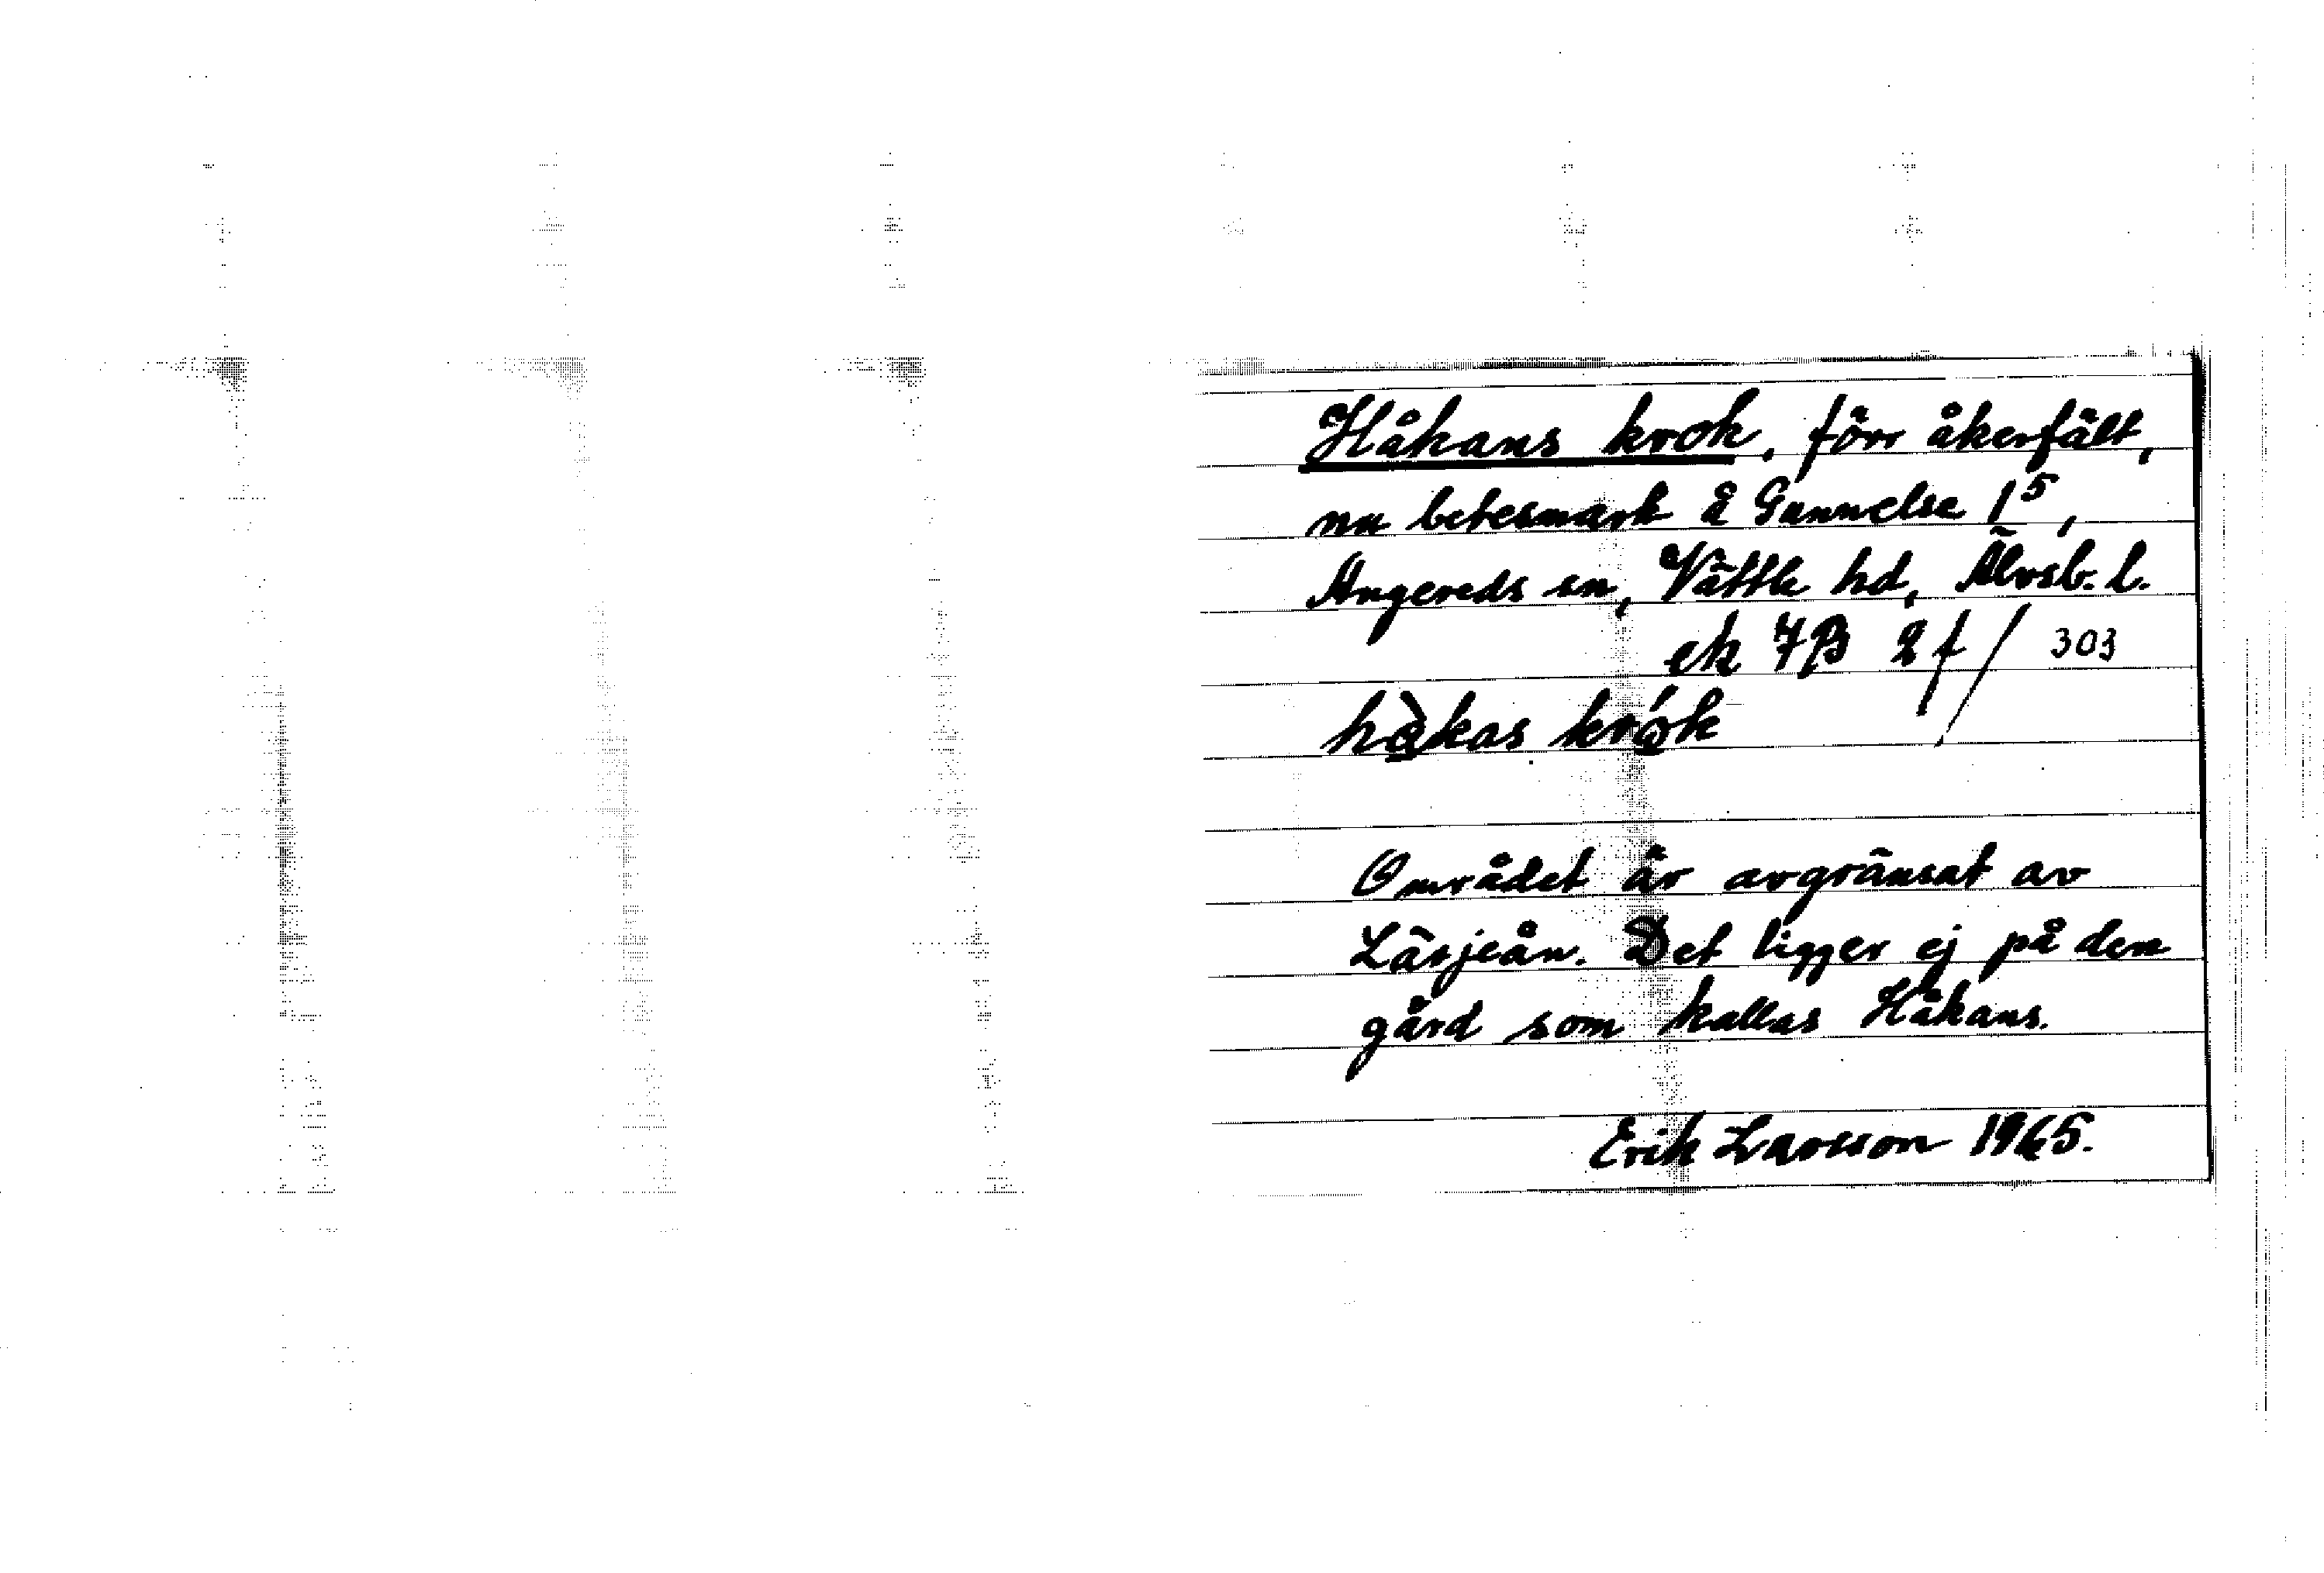 Håkans krok, förr åkerfält,
nu betesmark å Gunnelse 1⁵,
Angereds sn, Vättle hd, Älvsb. l.
ek 7B 2f / 303
hå̀kas krók
Området är avgränsat av
Lärjeån. Det ligger ej på den
gård som kallas Håkans.
Erik Larsson 1965.